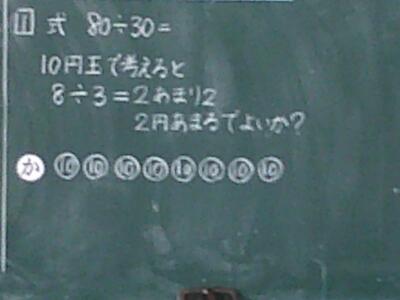 1 式 80÷30=
10円玉で考えると
8÷3=2あまり2
2円あまるでよいか?
か 10 10 10 10 10 10 10 10